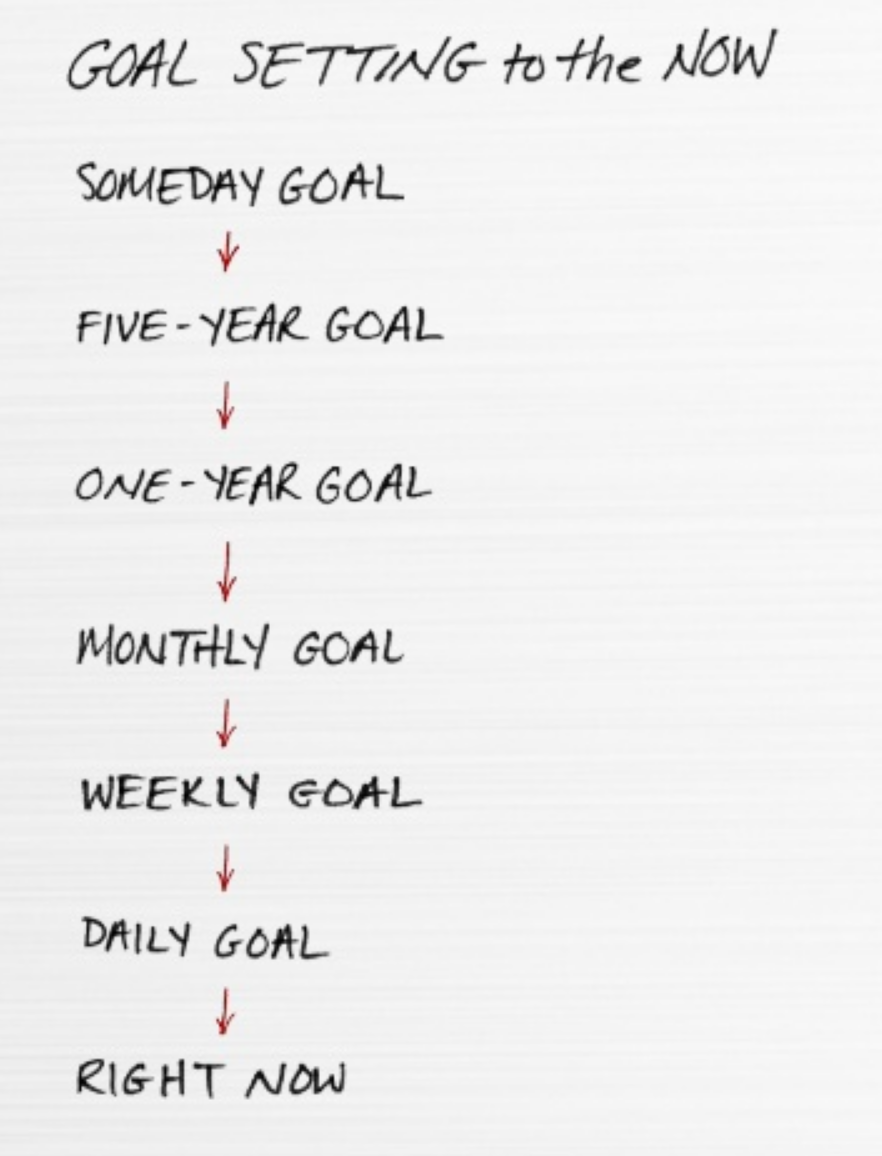 GOAL SETTING to the NOW
SOMEDAY GOAL
↓
FIVE-YEAR GOAL
↓
ONE-YEAR GOAL
↓
MONTHLY GOAL
↓
WEEKLY GOAL
↓
DAILY GOAL
↓
RIGHT NOW